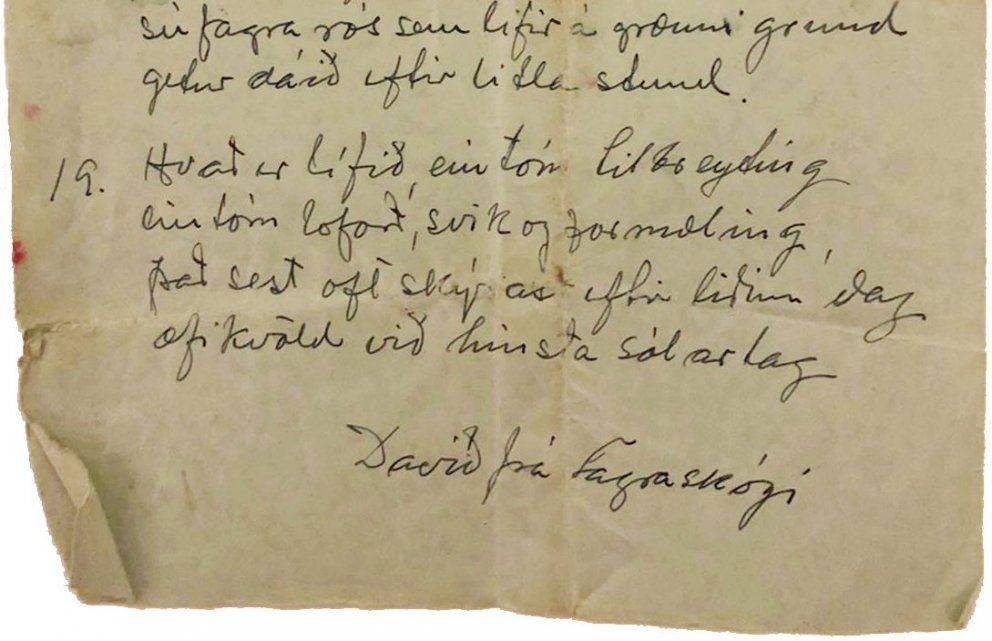 sú fagra rós sem lifir á grænni grund
getur dáið eftir litla stund.
19. Hvað er lífið, ein tóm litbreyting
ein tóm loforð, svik og formæling,
það sest oft skýras eftir liðinn dag
æfikvöld við hinsta sólarlag
Davið frá Fagraskógi